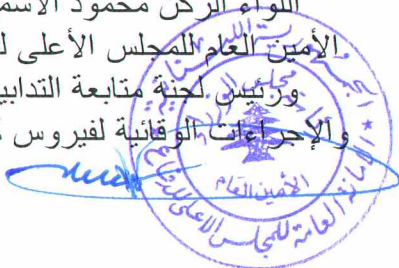 اللواء الركن محمود الاسم
الأمين العام للمجلس الأعلى ل
ورئيس لجنة متابعة التدابير
والإجراءات الوقائية لفيروس ك
الجمهورية اللبنانية
الأمين العام
الأمانة العامة للمجلس الاعلى للدفاع